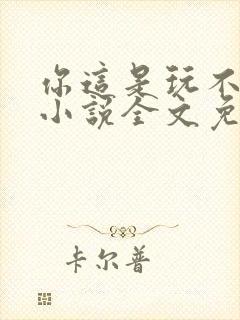 你這是玩不
小說全文免
卡尔普